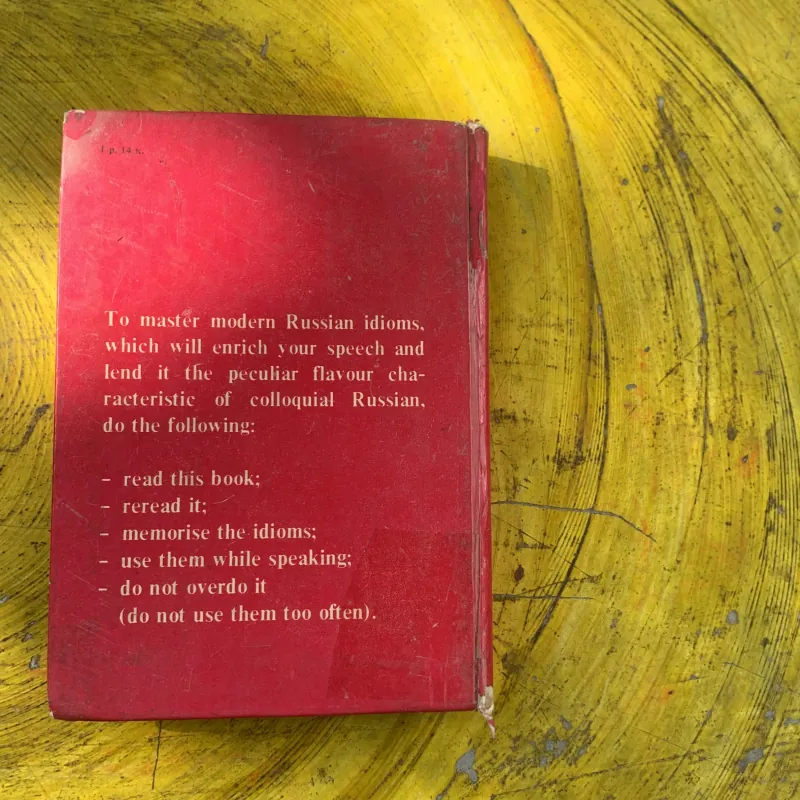 1 р. 14 к.
To master modern Russian idioms,
which will enrich your speech and
lend it the peculiar flavour cha-
racteristic of colloquial Russian,
do the following:
- read this book;
- reread it;
- memorise the idioms;
- use them while speaking;
- do not overdo it
(do not use them too often).